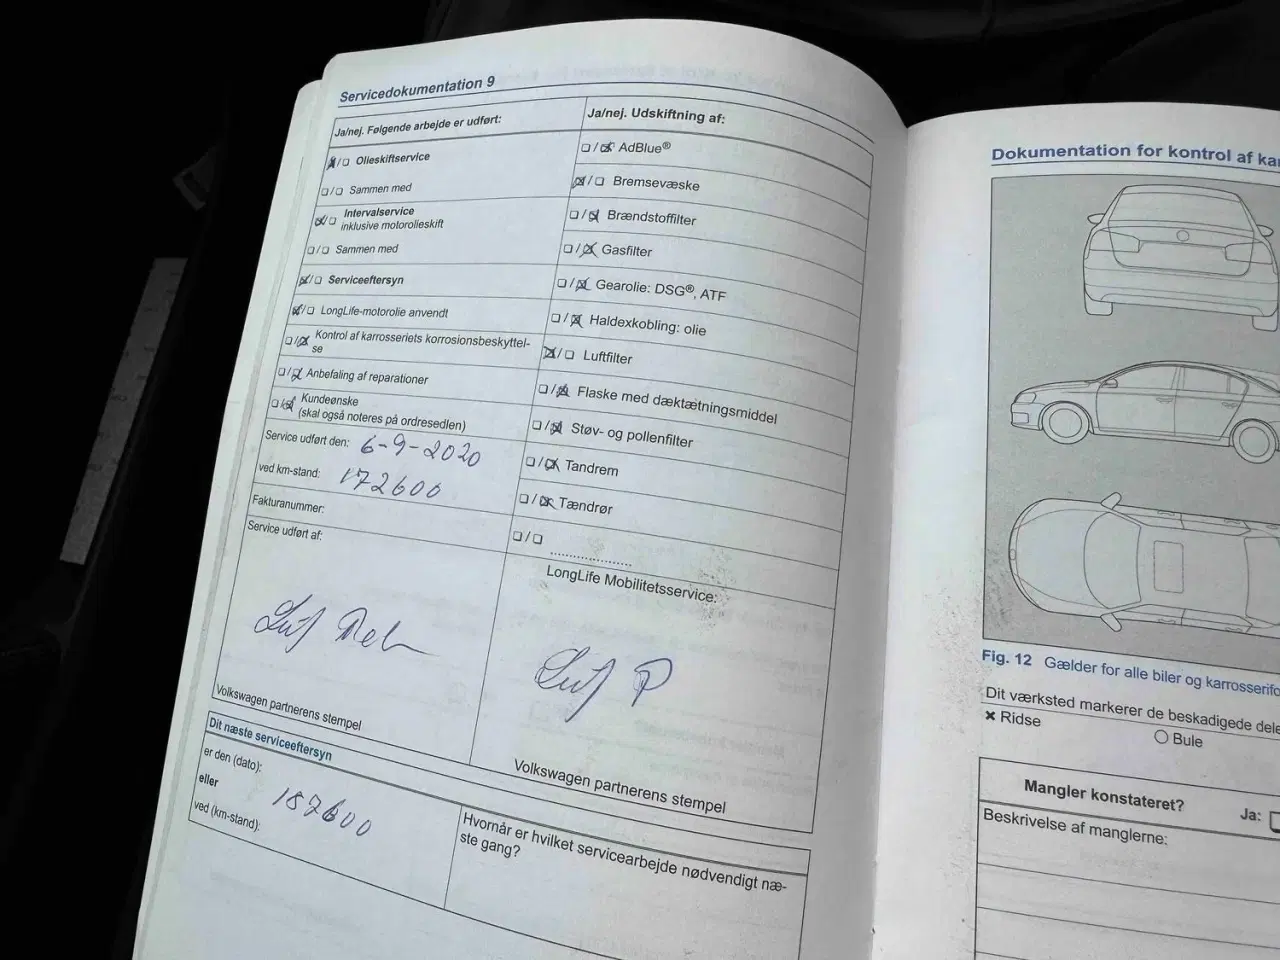 Servicedokumentation 9
Ja/nej. Følgende arbejde er udført:
Olieskiftservice
Sammen med
Intervalservice
inklusive motorolieskift
Sammen med
Serviceeftersyn
LongLife-motorolie anvendt
Kontrol af karrosseriets korrosionsbeskyttel-
se
Anbefaling af reparationer
Kundeønske
(skal også noteres på ordresedlen)
Service udført den: 6-9-2020
ved km-stand: 172600
Fakturanummer:
Service udført af:
Volkswagen partnerens stempel
Ja/nej. Udskiftning af:
AdBlue®
Bremsevæske
Brændstoffilter
Gasfilter
Gearolie: DSG®, ATF
Haldexkobling: olie
Luftfilter
Flaske med dæktætningsmiddel
Støv- og pollenfilter
Tandrem
Tændrør
LongLife Mobilitetsservice:
Volkswagen partnerens stempel
Dit næste serviceeftersyn
er den (dato):
eller
187600
ved (km-stand):
Hvornår er hvilket servicearbejde nødvendigt næ-
ste gang?
Dokumentation for kontrol af
Fig. 12 Gælder for alle biler og
Dit værksted markerer de beskadigede
Ridse
Bule
Mangler konstateret?
Ja:
Beskrivelse af manglerne: